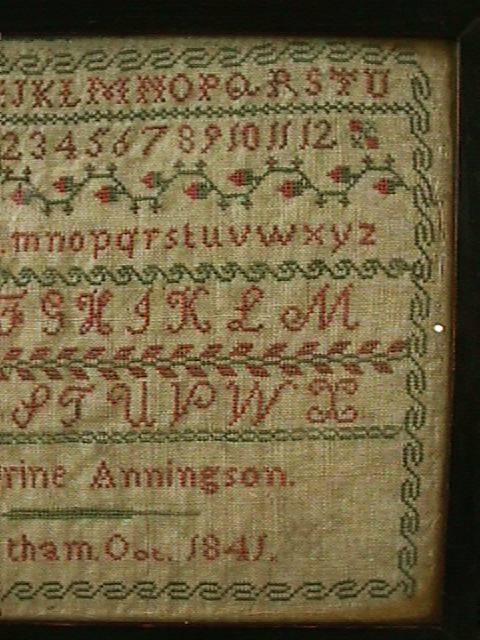 JKLMNOPQRSTU
2 3 4 5 6 7 8 9 10 11 12
mnopqrstuvwxyz
F G H I K L M
S T U V W X
rine Anningson.
tham. Oct. 1841.